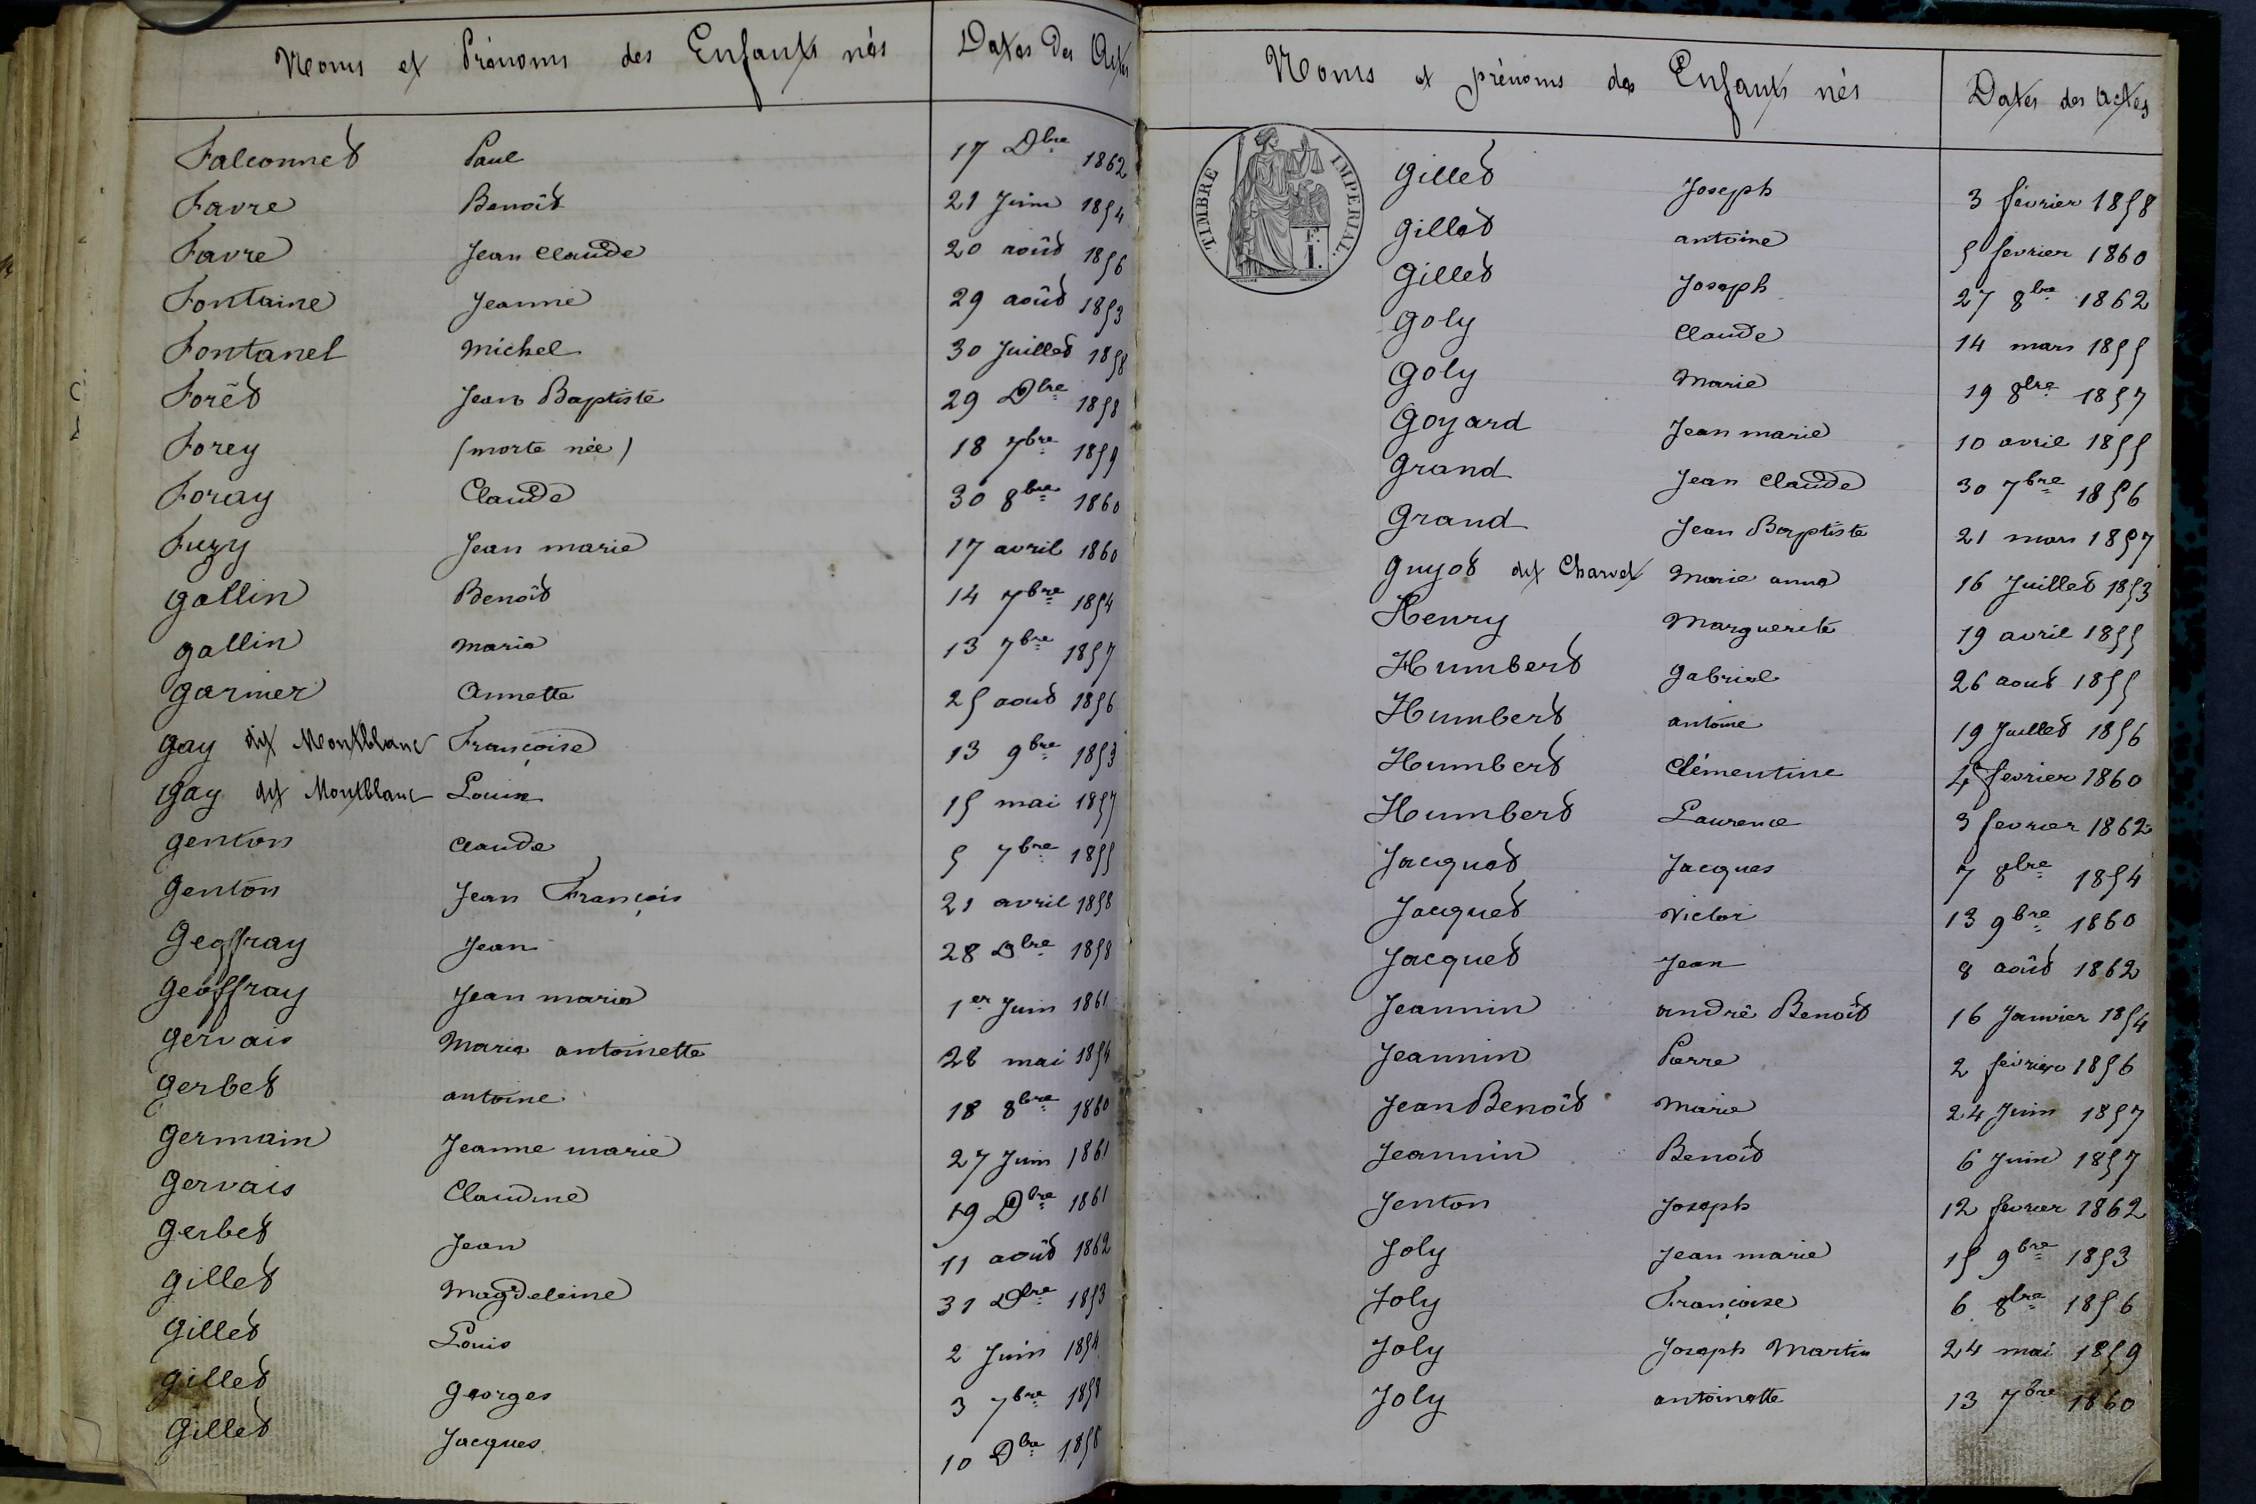 Noms et Prénoms des Enfants nés Dates des Actes
Falconnet Paul 17 Dbre 1862
Favre Benoît 21 Juin 1854
Favre Jean Claude 20 août 1856
Fontaine Jeanne 29 août 1853
Fontanel Michel 30 Juillet 1858
Forêt Jean Baptiste 29 Dbre 1858
Forey (morte née) 18 7bre 1859
Foray Claude 30 8bre 1860
Fuzy Jean marie 17 avril 1860
Gallin Benoît 14 7bre 1854
Gallin Marie 13 7bre 1857
Garnier Annette 25 aout 1856
Gay dit Montblanc Françoise 13 9bre 1853
Gay dit Montblanc Louis 15 mai 1857
Genton Claude 5 7bre 1855
Genton Jean François 21 avril 1858
Geoffray Jean 28 Dbre 1858
Geoffray Jean marie 1er Juin 1861
Gervais Marie antoinette 28 mai 1854
Gerbet antoine 18 8bre 1860
Germain Jeanne marie 27 Juin 1861
Gervais Claudine 19 Dbre 1861
Gerbet Jean 11 août 1862
Gillet Magdeleine 31 Dbre 1853
Gillet Louis 2 Juin 1854
Gillet Georges 3 7bre 1858
Gillet Jacques 10 Dbre
Noms et prénoms des Enfants nés Dates des Actes
TIMBRE IMPÉRIAL.
E. I.
Gillet Joseph 3 février 1858
Gillet antoine 5 fevrier 1860
Gillet Joseph 27 8bre 1862
Goly Claude 14 mars 1855
Goly Marie 19 8bre 1857
Goyard Jean marie 10 avril 1855
Grand Jean Claude 30 7bre 1856
Grand Jean Baptiste 21 mars 1857
Guyot dit Charvet Marie anna 16 Juillet 1853
Henry Marguerite 19 avril 1855
Humbert Gabriel 26 aout 1855
Humbert antoine 19 Juillet 1856
Humbert Clémentine 4 fevrier 1860
Humbert Laurence 3 fevrier 1862
Jacquet Jacques 7 8bre 1854
Jacquet Victor 13 9bre 1860
Jacquet Jean 8 août 1862
Jeannin andré Benoît 16 Janvier 1854
Jeannin Pierre 2 février 1856
Jean Benoît Marie 24 Juin 1857
Jeannin Benoît 6 Juin 1857
Jenton Joseph 12 fevrier 1862
Joly Jean marie 15 9bre 1853
Joly Françoise 6 8bre 1856
Joly Joseph Martin 24 mai 1859
Joly antoinette 13 7bre 1860